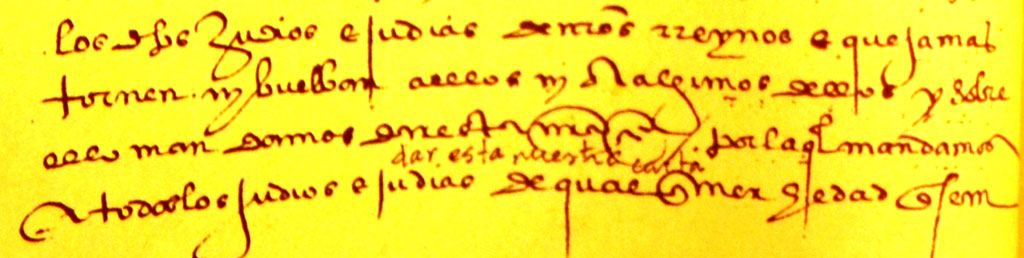 los dhos Judios e judias de nros rreynos e que jamas
tornen ni buelban a ellos ni a algunos dellos y sobre
ello mandamos dar esta nra carta por la ql mandamos
dar esta nuestra carta
a todos los judios e judias de qualquier hedad que sean